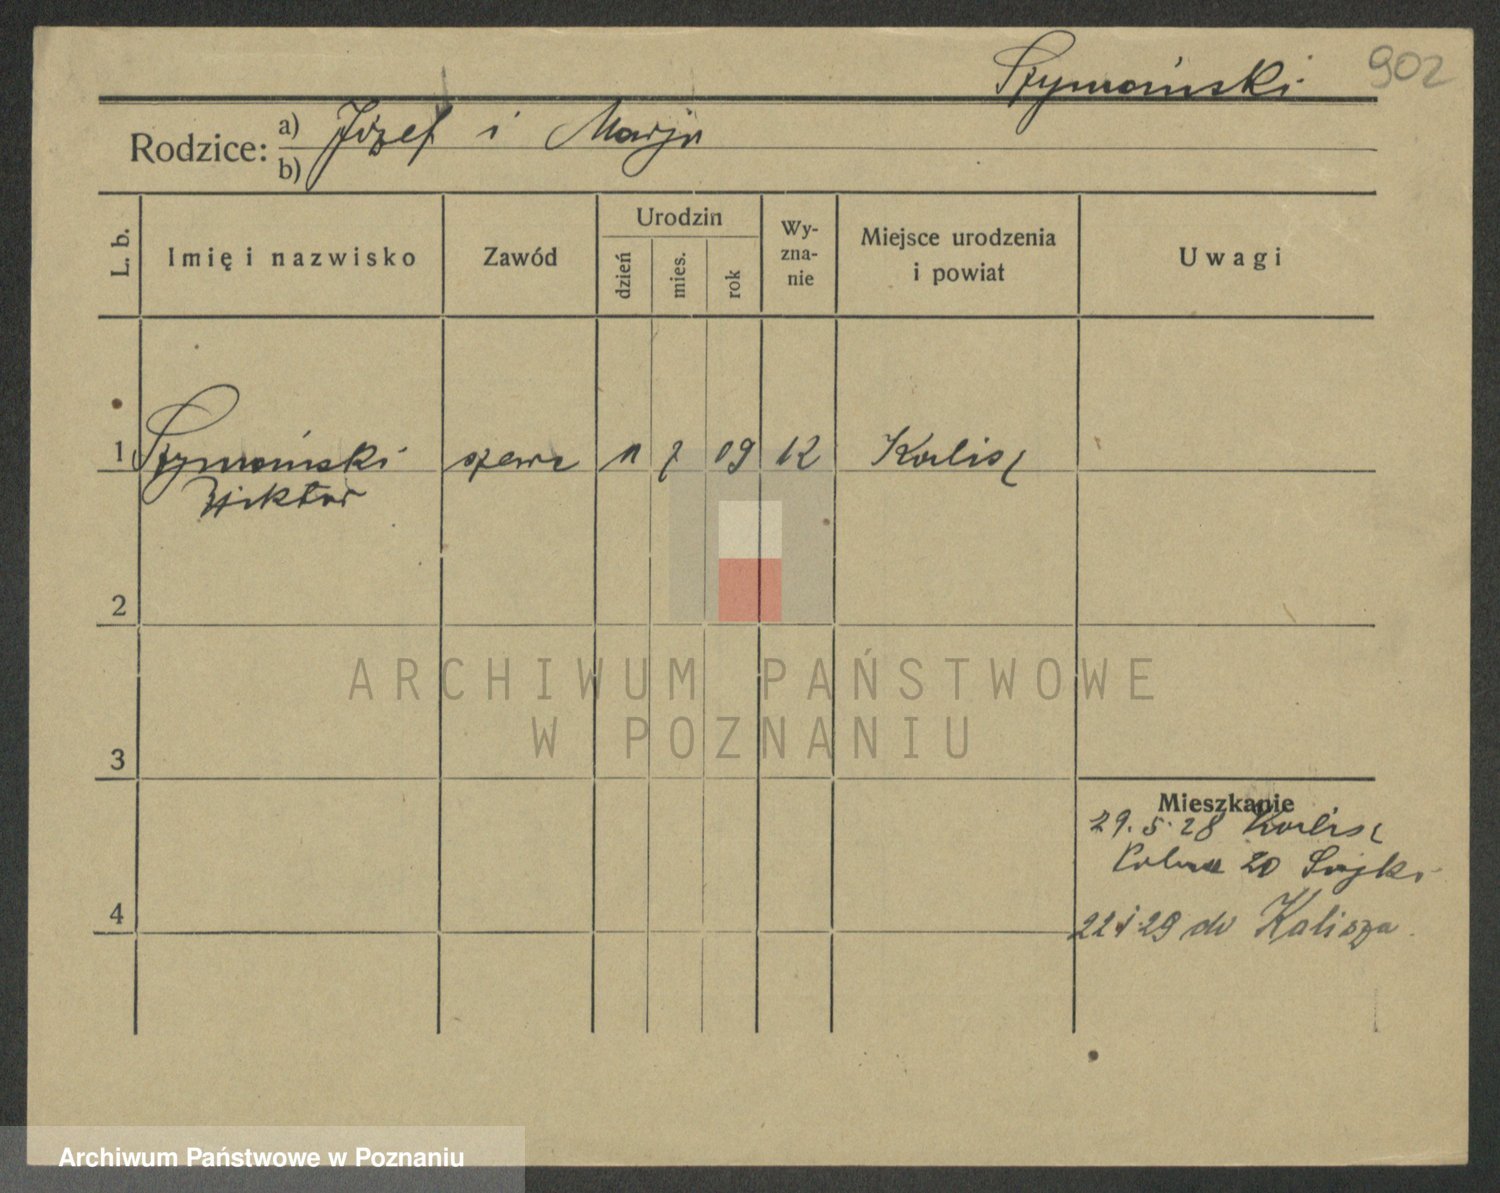 Szymański
902
Rodzice: a) Józef i Marja
b)
L. b.
Imię i nazwisko
Zawód
Urodzin
dzień
mies.
rok
Wy-
zna-
nie
Miejsce urodzenia
i powiat
Uwagi
1 Szymański szewc 11 7 09 12 Kalisz
Wiktor
2
3
4
Mieszkanie
29. 5. 28 Kalisz
20
22 29 do Kalisza
ARCHIWUM PAŃSTWOWE
W POZNANIU
Archiwum Państwowe w Poznaniu